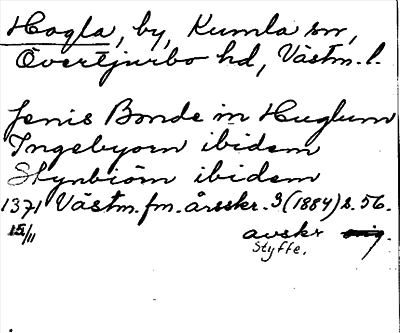 Hogla, by, Kumla sn,
Övertjurbo hd, Västm. l.
Jenis Bonde in Huglum
Ingebyorn ibidem
Stynbiörn ibidem
1371 Västm. fm. årsskr. 3 (1884) s. 56.
15/11 avskr orig.
Styffe.